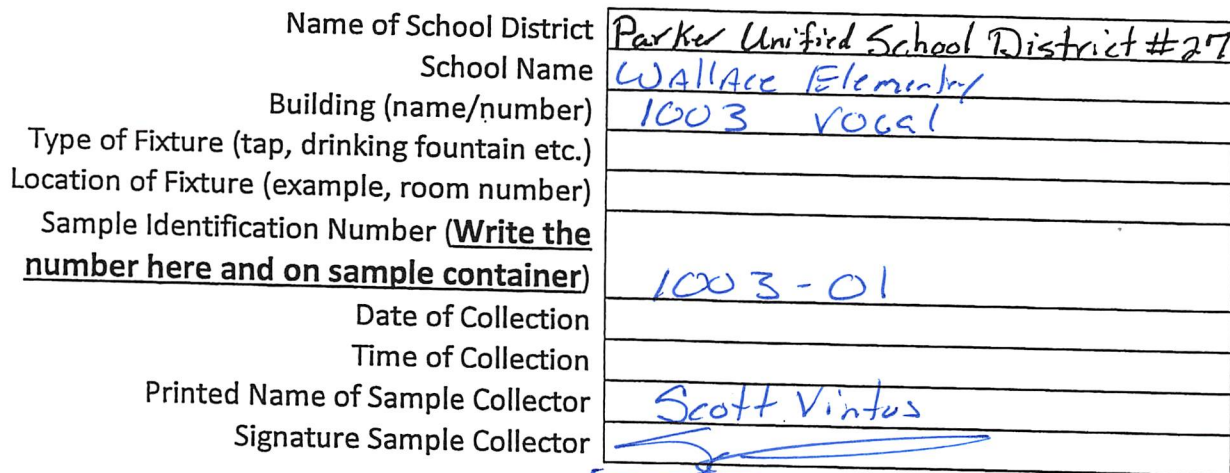 Name of School District Parker Unified School District #27
School Name Wallace Elementry
Building (name/number) 1003 Vocal
Type of Fixture (tap, drinking fountain etc.)
Location of Fixture (example, room number)
Sample Identification Number (Write the
number here and on sample container) 1003-01
Date of Collection
Time of Collection
Printed Name of Sample Collector Scott Vintus
Signature Sample Collector